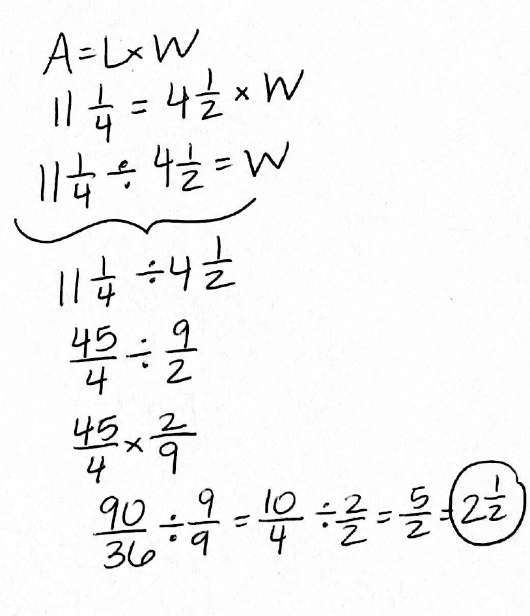 A = L × W
11 1/4 = 4 1/2 × W
11 1/4 ÷ 4 1/2 = W
11 1/4 ÷ 4 1/2
45/4 ÷ 9/2
45/4 × 2/9
90/36 ÷ 9/9 = 10/4 ÷ 2/2 = 5/2 = 2 1/2